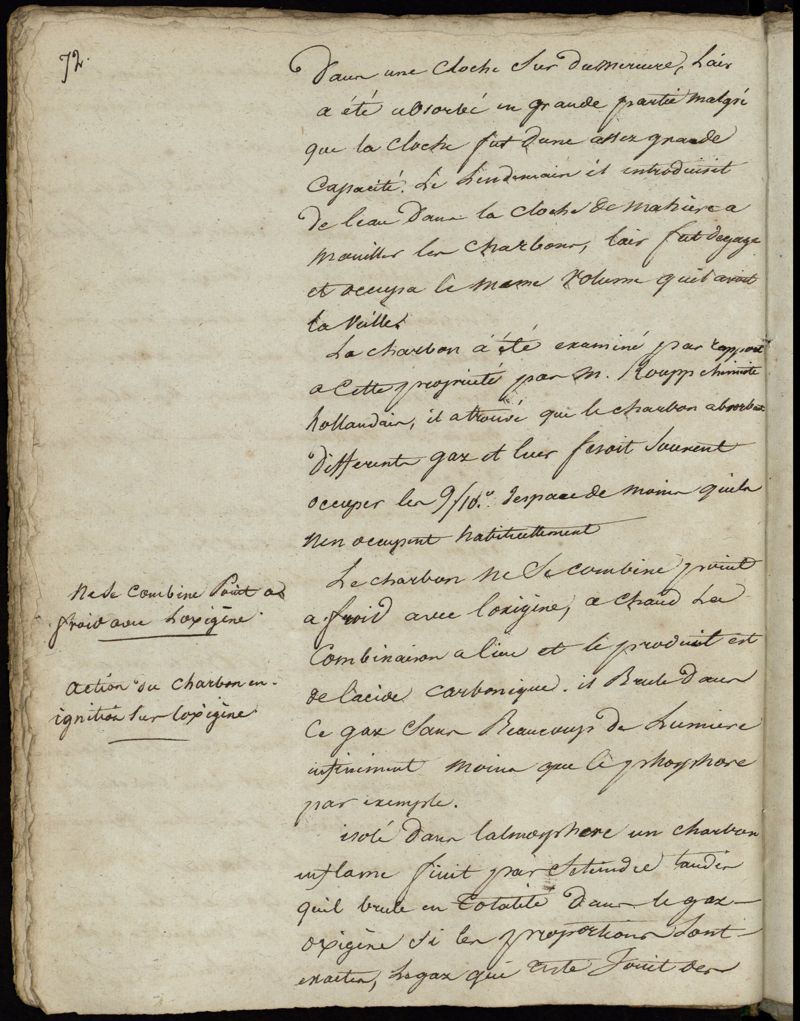 72.
Dans une cloche sur du mercure, Lair
a été absorbé en grande partie malgré
que la cloche fut dune assez grande
Capacité. Le Lendemain il introduisit
de leau Dans la cloche de maniere a
mouiller les charbons, lair fut degagé
et occupa le meme volume quil avoit
la veille.
Le charbon a été examiné par rapport
a Cette propriété par m. Roupp chimiste
hollandais, il a trouvé que le charbon absorboit
differents gaz et leur fesoit souvent
occuper les 9/10.e despace de moins quils
nen occupent habituellement
Le charbon ne se combine point
a froid avec loxigène, a chaud La
Combinaison a lieu et le produit est
de lacide carbonique. il Brule Dans
Ce gaz sans Beaucoup de Lumiere
infiniment moins que le phosphore
par exemple.
isolé Dans latmosphere un charbon
inflamé finit par seteindre tandis
quil brule en totalité Dans le gaz
oxigène si les proportions sont
exactes, Le gaz qui reste Jouit des
ne se combine Point a
froid avec Loxigène.
action du charbon en
ignition sur loxigène.